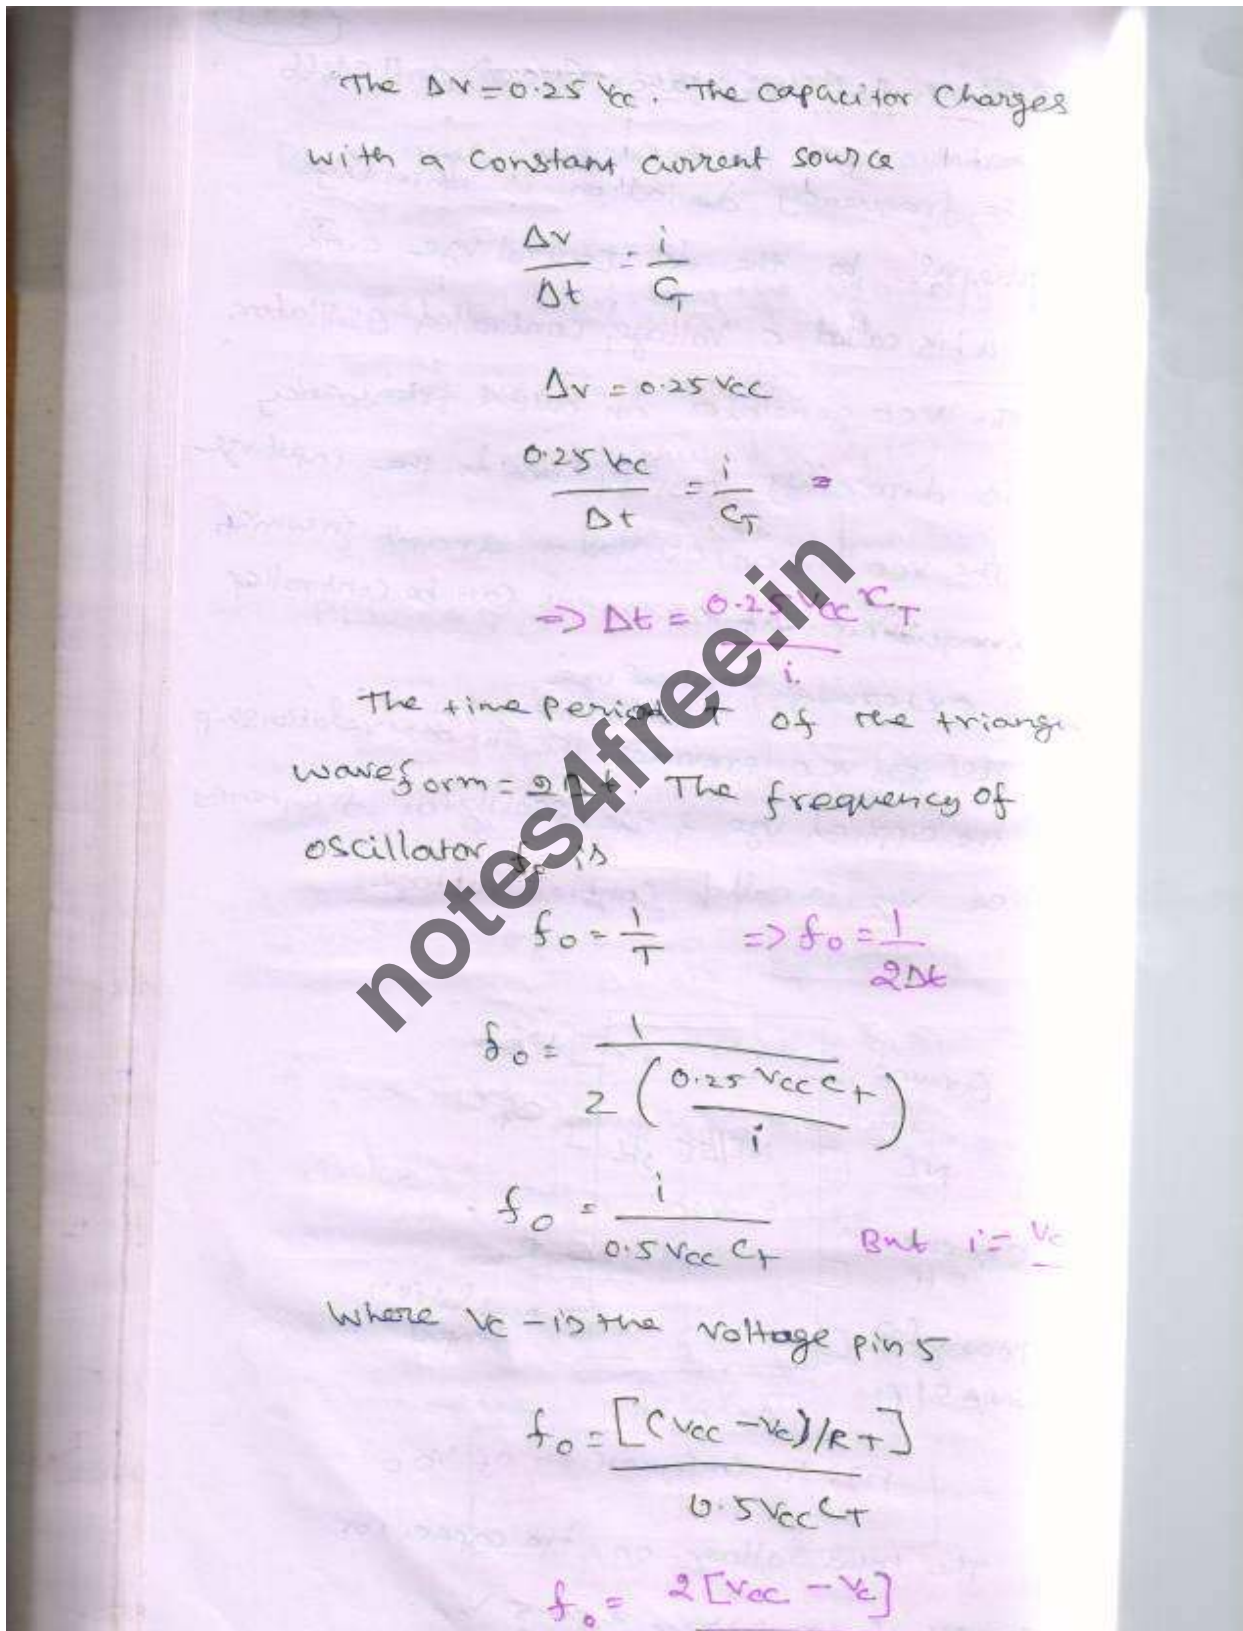 The ΔV=0.25 Vcc. The capacitor charges
with a constant current source
Δv/Δt = i/C_T
Δv = 0.25 Vcc
0.25 Vcc/Δt = i/C_T =
=> Δt = 0.25 Vcc × C_T/i.
The time period T of the triang
waveform = 2Δt. The frequency of
oscillator f₀ is
f₀ = 1/T => f₀ = 1/2Δt
f₀ = 1/2(0.25 Vcc C_T/i)
f₀ = i/0.5 Vcc C_T But i = Vc
Where Vc – is the voltage pin 5
f₀ = [(Vcc – Vc)/R_T]/0.5 Vcc C_T
f₀ = 2[Vcc – Vc]
notes4free.in